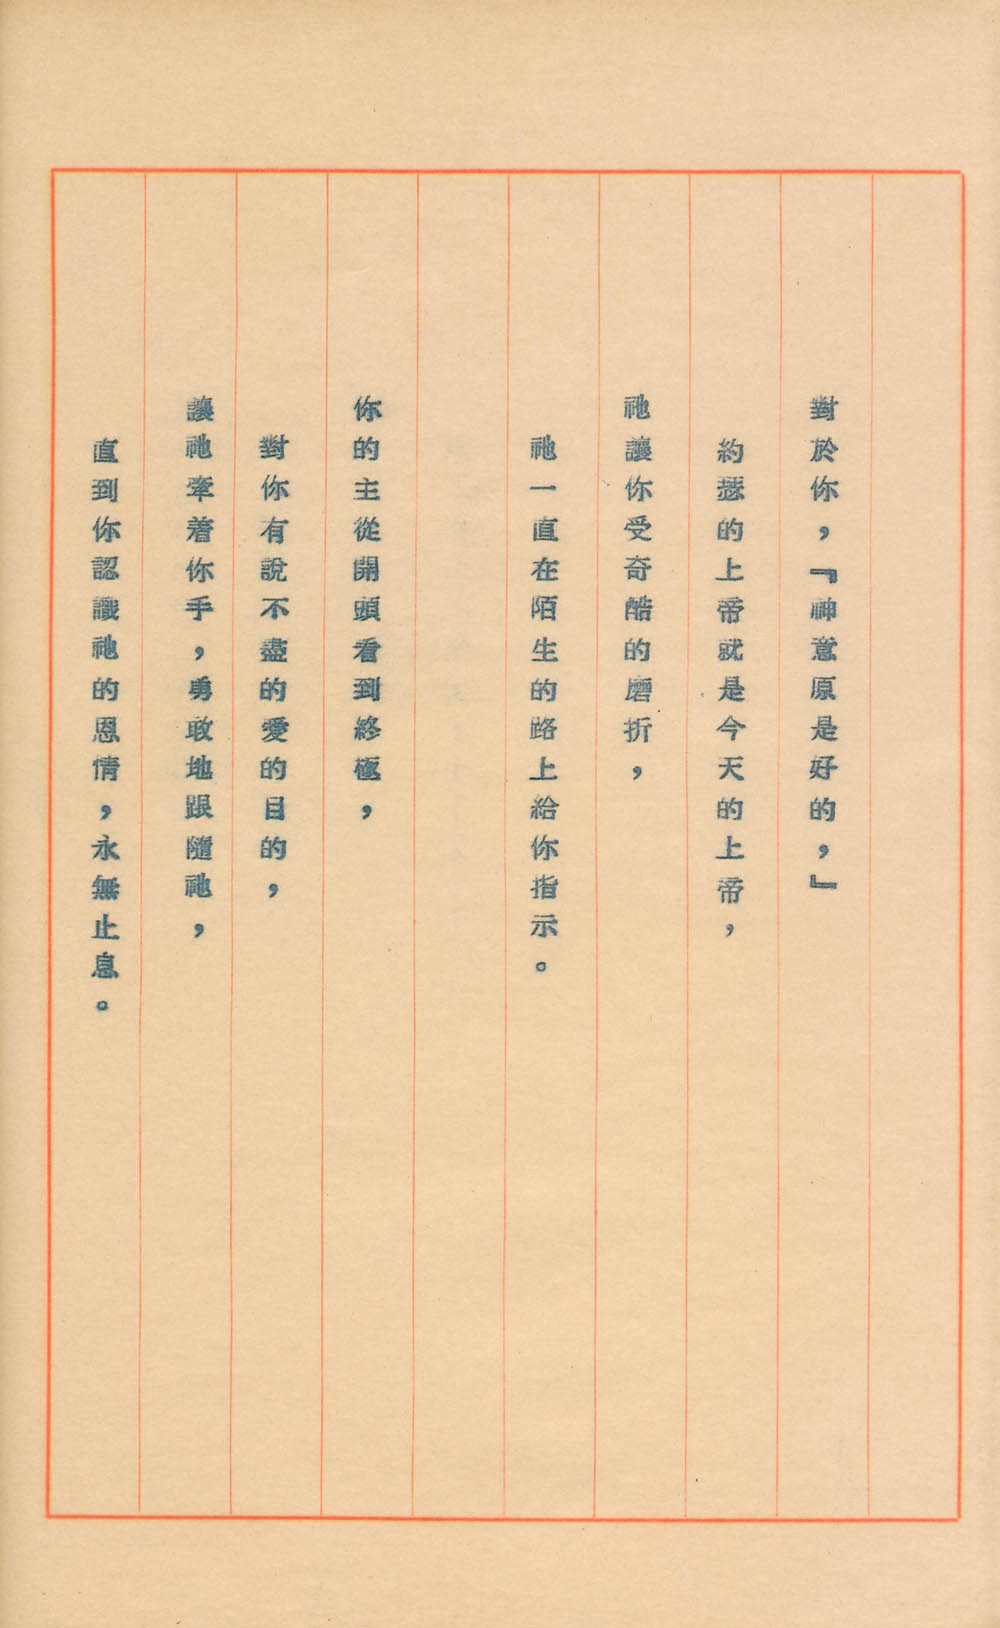 對於你，『神意原是好的，』
約瑟的上帝就是今天的上帝，
祂讓你受奇酷的磨折，
祂一直在陌生的路上給你指示。
你的主從開頭看到終極，
對你有說不盡的愛的目的，
讓祂牽着你手，勇敢地跟隨祂，
直到你認識祂的恩情，永無止息。